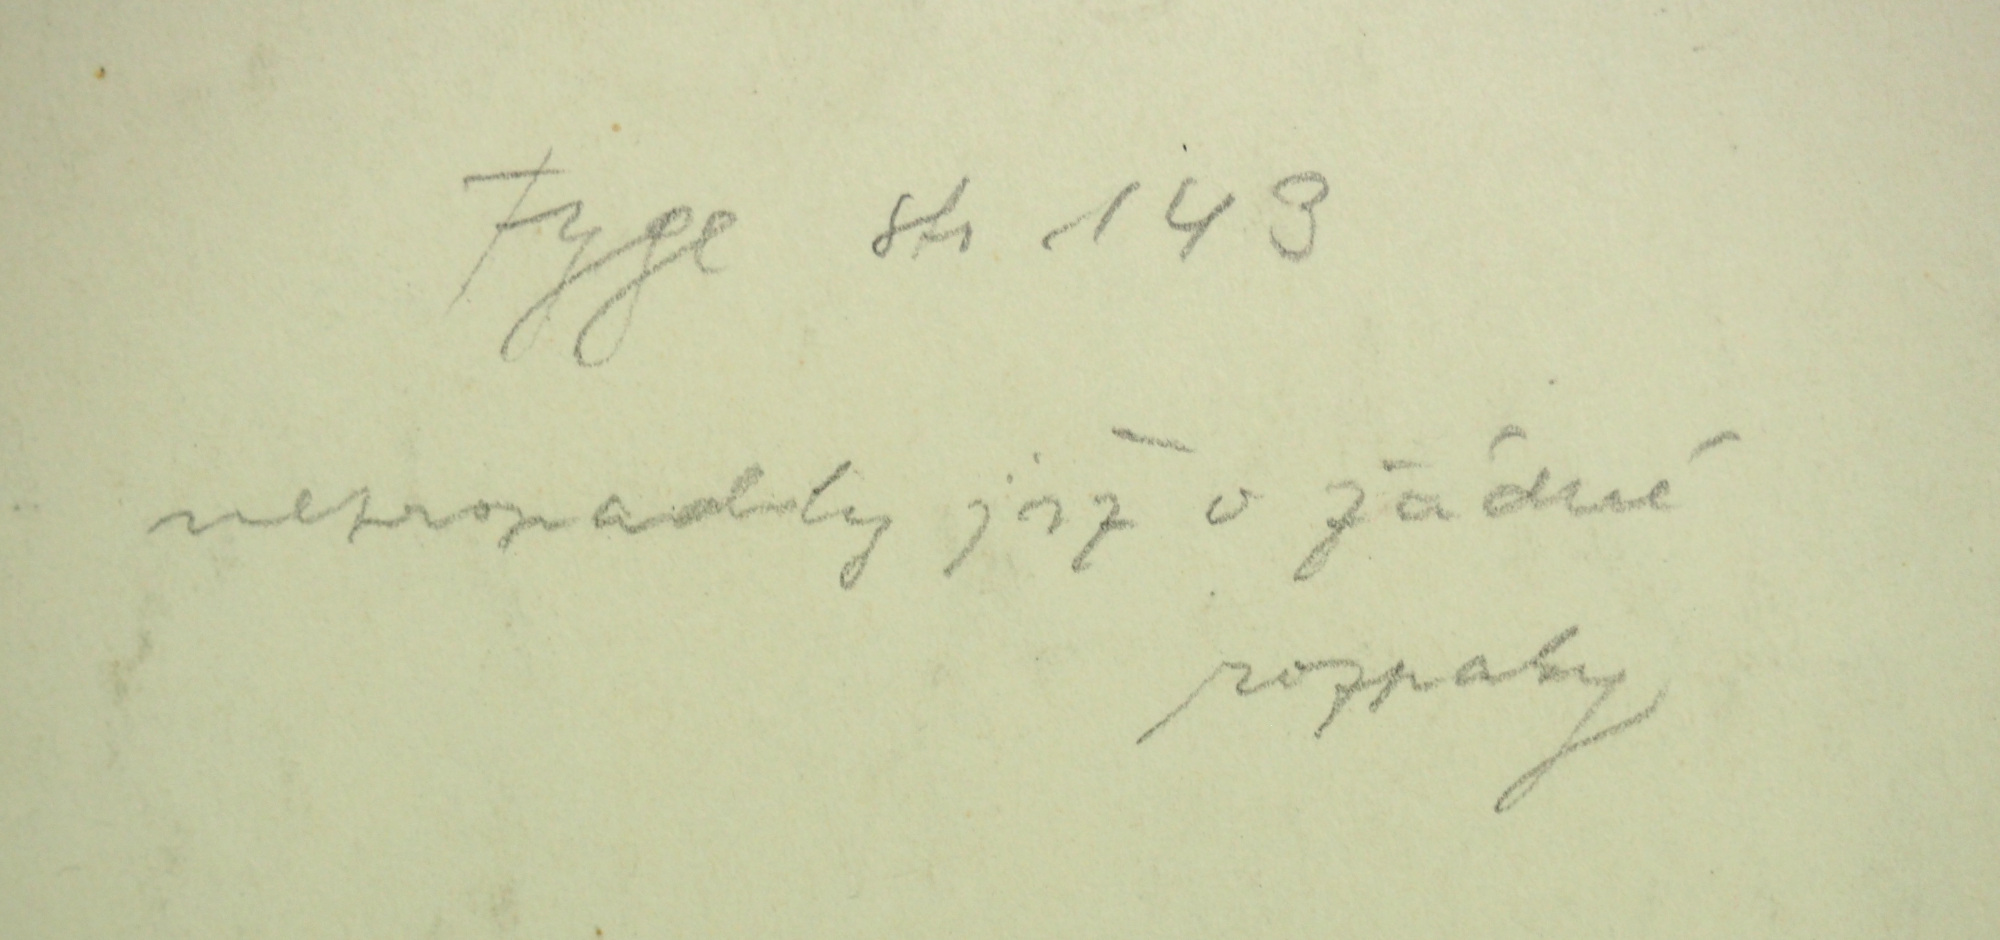 Fyge str 143
nepropadly již v žádné
rozpaky